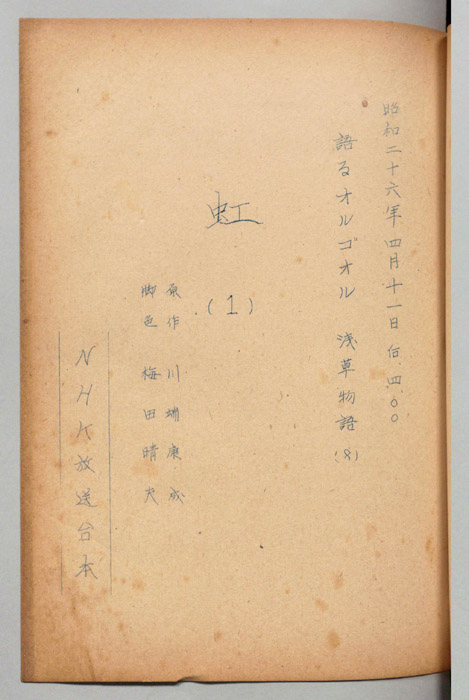 昭和二十六年四月十一日后.四.〇〇
語るオルゴオル 浅草物語(8)
虹
(1)
原作 川端康成
脚色 梅田晴夫
NHK放送台本